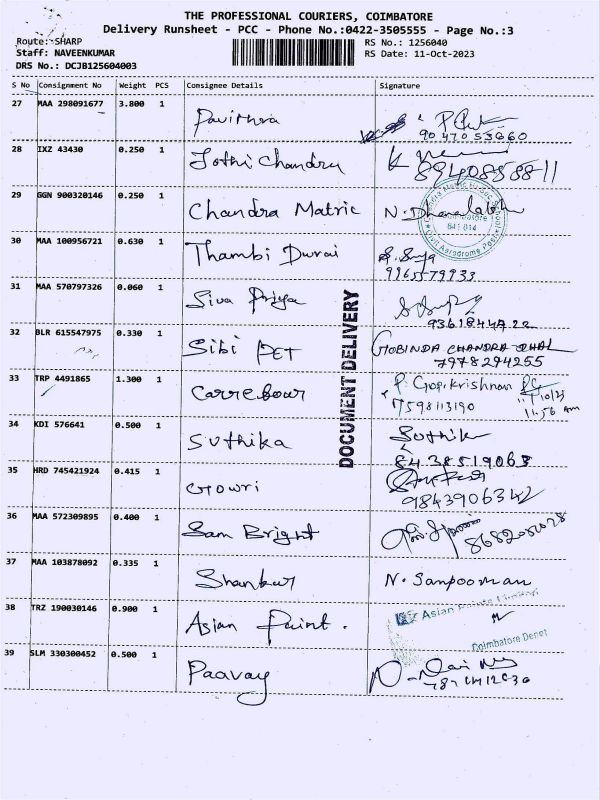 THE PROFESSIONAL COURIERS, COIMBATORE
Delivery Runsheet - PCC - Phone No.:0422-3505555 - Page No.:3
Route: SHARP
RS No.: 1256040
Staff: NAVEENKUMAR
RS Date: 11-Oct-2023
DRS No.: DCJB125604003
S No Consignment No Weight PCS Consignee Details Signature
27 MAA 298091677 3.800 1 Pavithra
28 IXZ 43430 0.250 1 Jothi Chandru
8940858811
29 GGN 900320146 0.250 1 Chandra Matric N. Dhanalakshmi
Civil Aerodrome Post
30 MAA 100956721 0.630 1 Thambi Durai
31 MAA 570797326 0.060 1 Siva Priya
32 BLR 615547975 0.330 1 Sibi PET GOBINDA CHANDRA DHAL
7978294255
33 TRP 4491865 1.300 1 Carrefour P. Gopikrishnan
7598113190 11.56 am
34 KDI 576641 0.500 1 Suthika Suthik
8438519063
35 HRD 745421924 0.415 1 Gowri
9843906342
36 MAA 572309895 0.400 1 Sam Bright
37 MAA 103878092 0.335 1 Shankar N. Sanpooman
38 TRZ 190030146 0.900 1 Asian Paint. Asian Paints Limited
Coimbatore Depot
39 SLM 330300452 0.500 1 Paavay
DOCUMENT DELIVERY